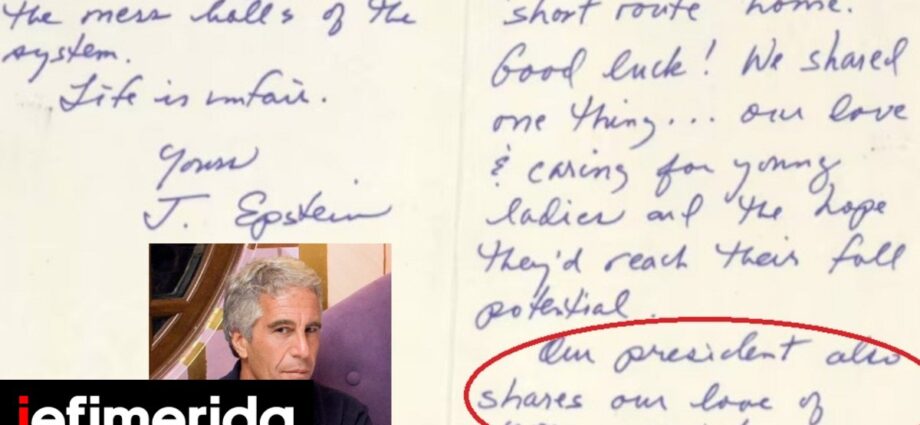 the mess halls of the
system.
Life is unfair.
Yours
J. Epstein
short route home.
Good luck! We shared
one thing... our love
& caring for young
ladies and the hope
they'd reach their full
potential.
Our president also
shares our love of
iefimerida